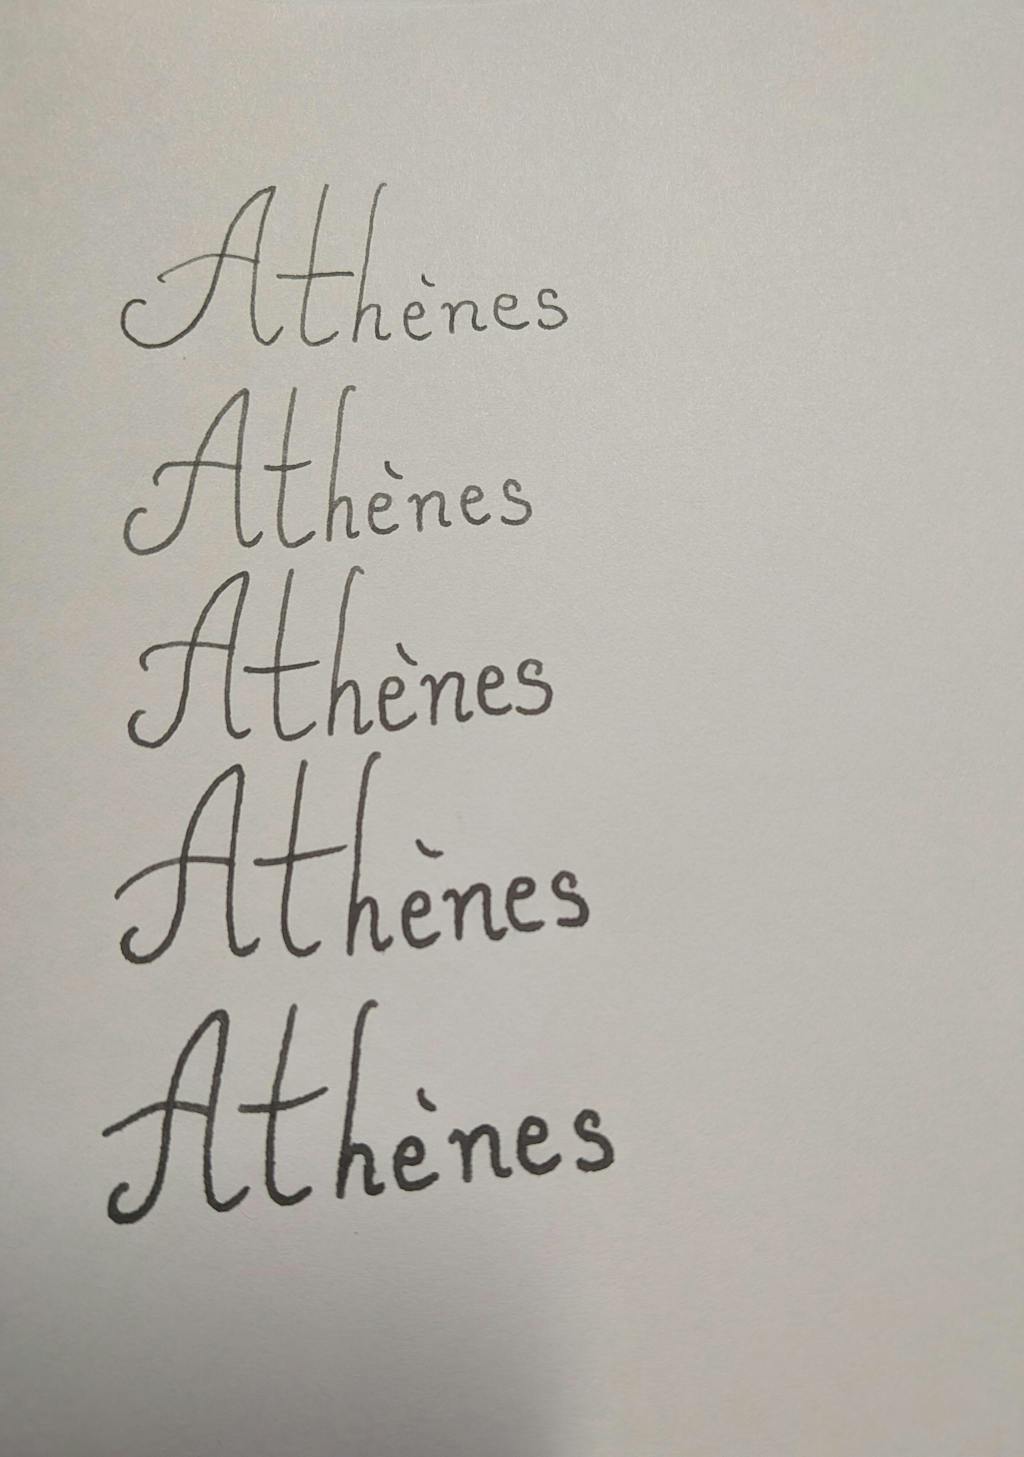 Athènes
Athènes
Athènes
Athènes
Athènes